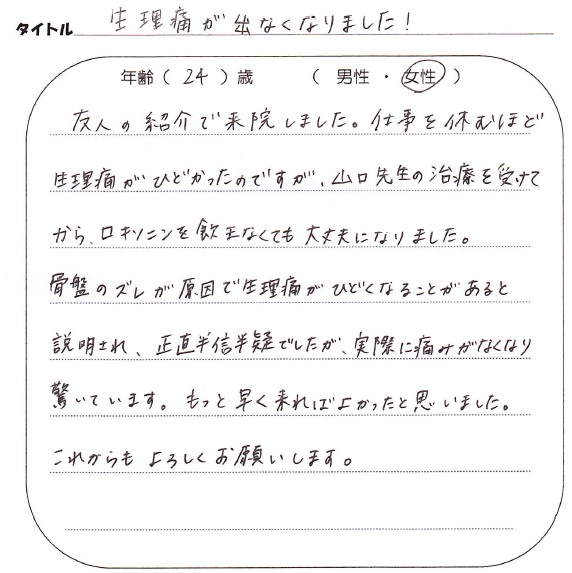 タイトル 生理痛が出なくなりました！
年齢（ 24 ）歳 （ 男性 ・ 女性 ）
友人の紹介で来院しました。仕事を休むほど
生理痛がひどかったのですが、山口先生の治療を受けて
から、ロキソニンを飲まなくても大丈夫になりました。
骨盤のズレが原因で生理痛がひどくなることがあると
説明され、正直半信半疑でしたが、実際に痛みがなくなり
驚いています。もっと早く来ればよかったと思いました。
これからもよろしくお願いします。